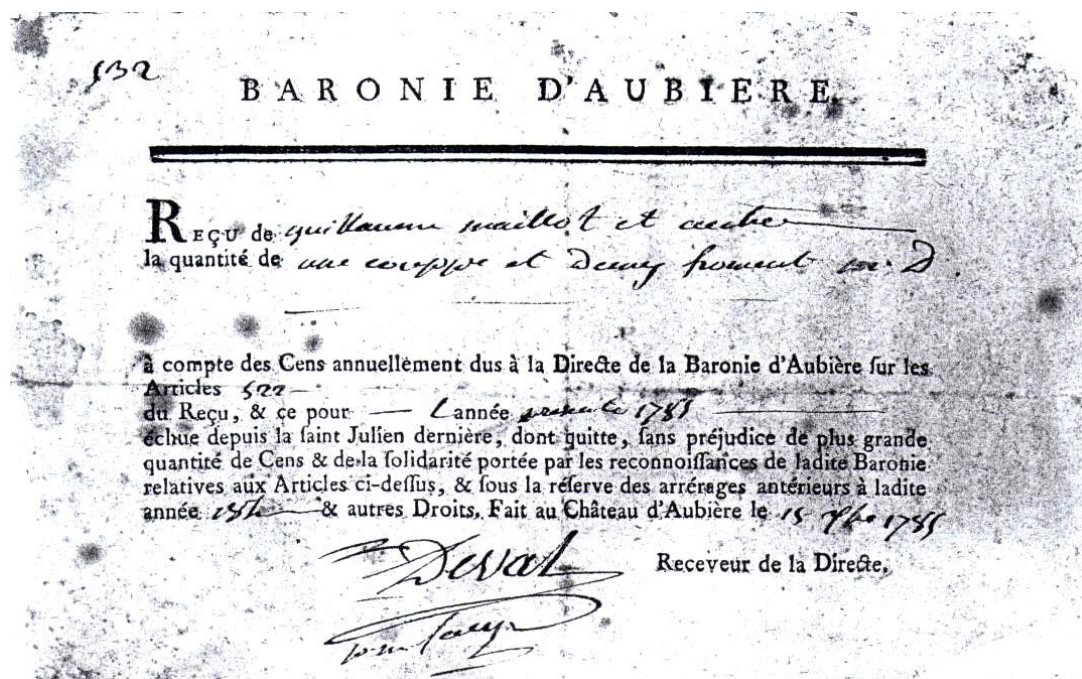 532
BARONIE D'AUBIERE.
REÇU de guillaume maillot et
la quantité de une couppe et Demy froment
à compte des Cens annuellement dus à la Directe de la Baronie d'Aubière ſur les
Articles 522
du Reçu, & ce pour — L'année presente 1785
échue depuis la ſaint Julien dernière, dont quitte, ſans préjudice de plus grande
quantité de Cens & de la ſolidarité portée par les reconnoiſſances de ladite Baronie
relatives aux Articles ci-deſſus, & ſous la réſerve des arrérages antérieurs à ladite
année & autres Droits, Fait au Château d'Aubière le 15 1785
Deval Receveur de la Directe,